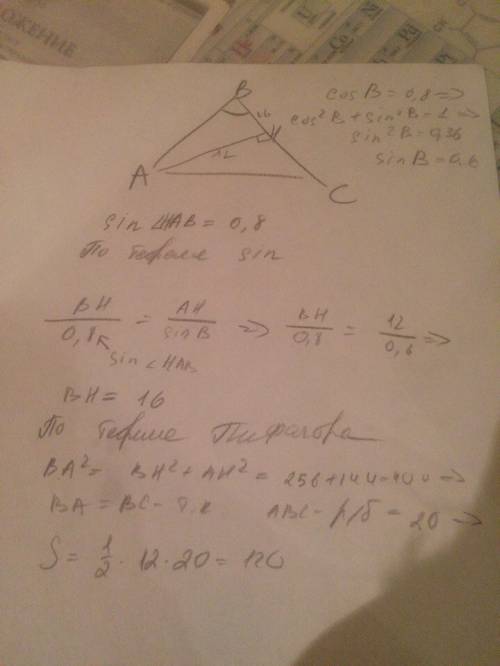 ЛОЖЕНИЕ
Co
Ni
Pd
B
16
H
12
A
C
cos B = 0,8 =>
cos² B + sin² B = 1 =>
sin² B = 0,36
sin B = 0,6
sin ∠HAB = 0,8
По теореме sin
BH/0,8 = AH/sin B => BH/0,8 = 12/0,6 =>
sin ∠HAB
BH = 16
По теореме Пифагора
BA² = BH² + AH² = 256 + 144 = 400 =>
BA = BC - т.к ABC - р/б = 20 =>
S = 1/2 · 12 · 20 = 120